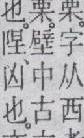 栗字从西
栗壁中古
也。陧凶也。